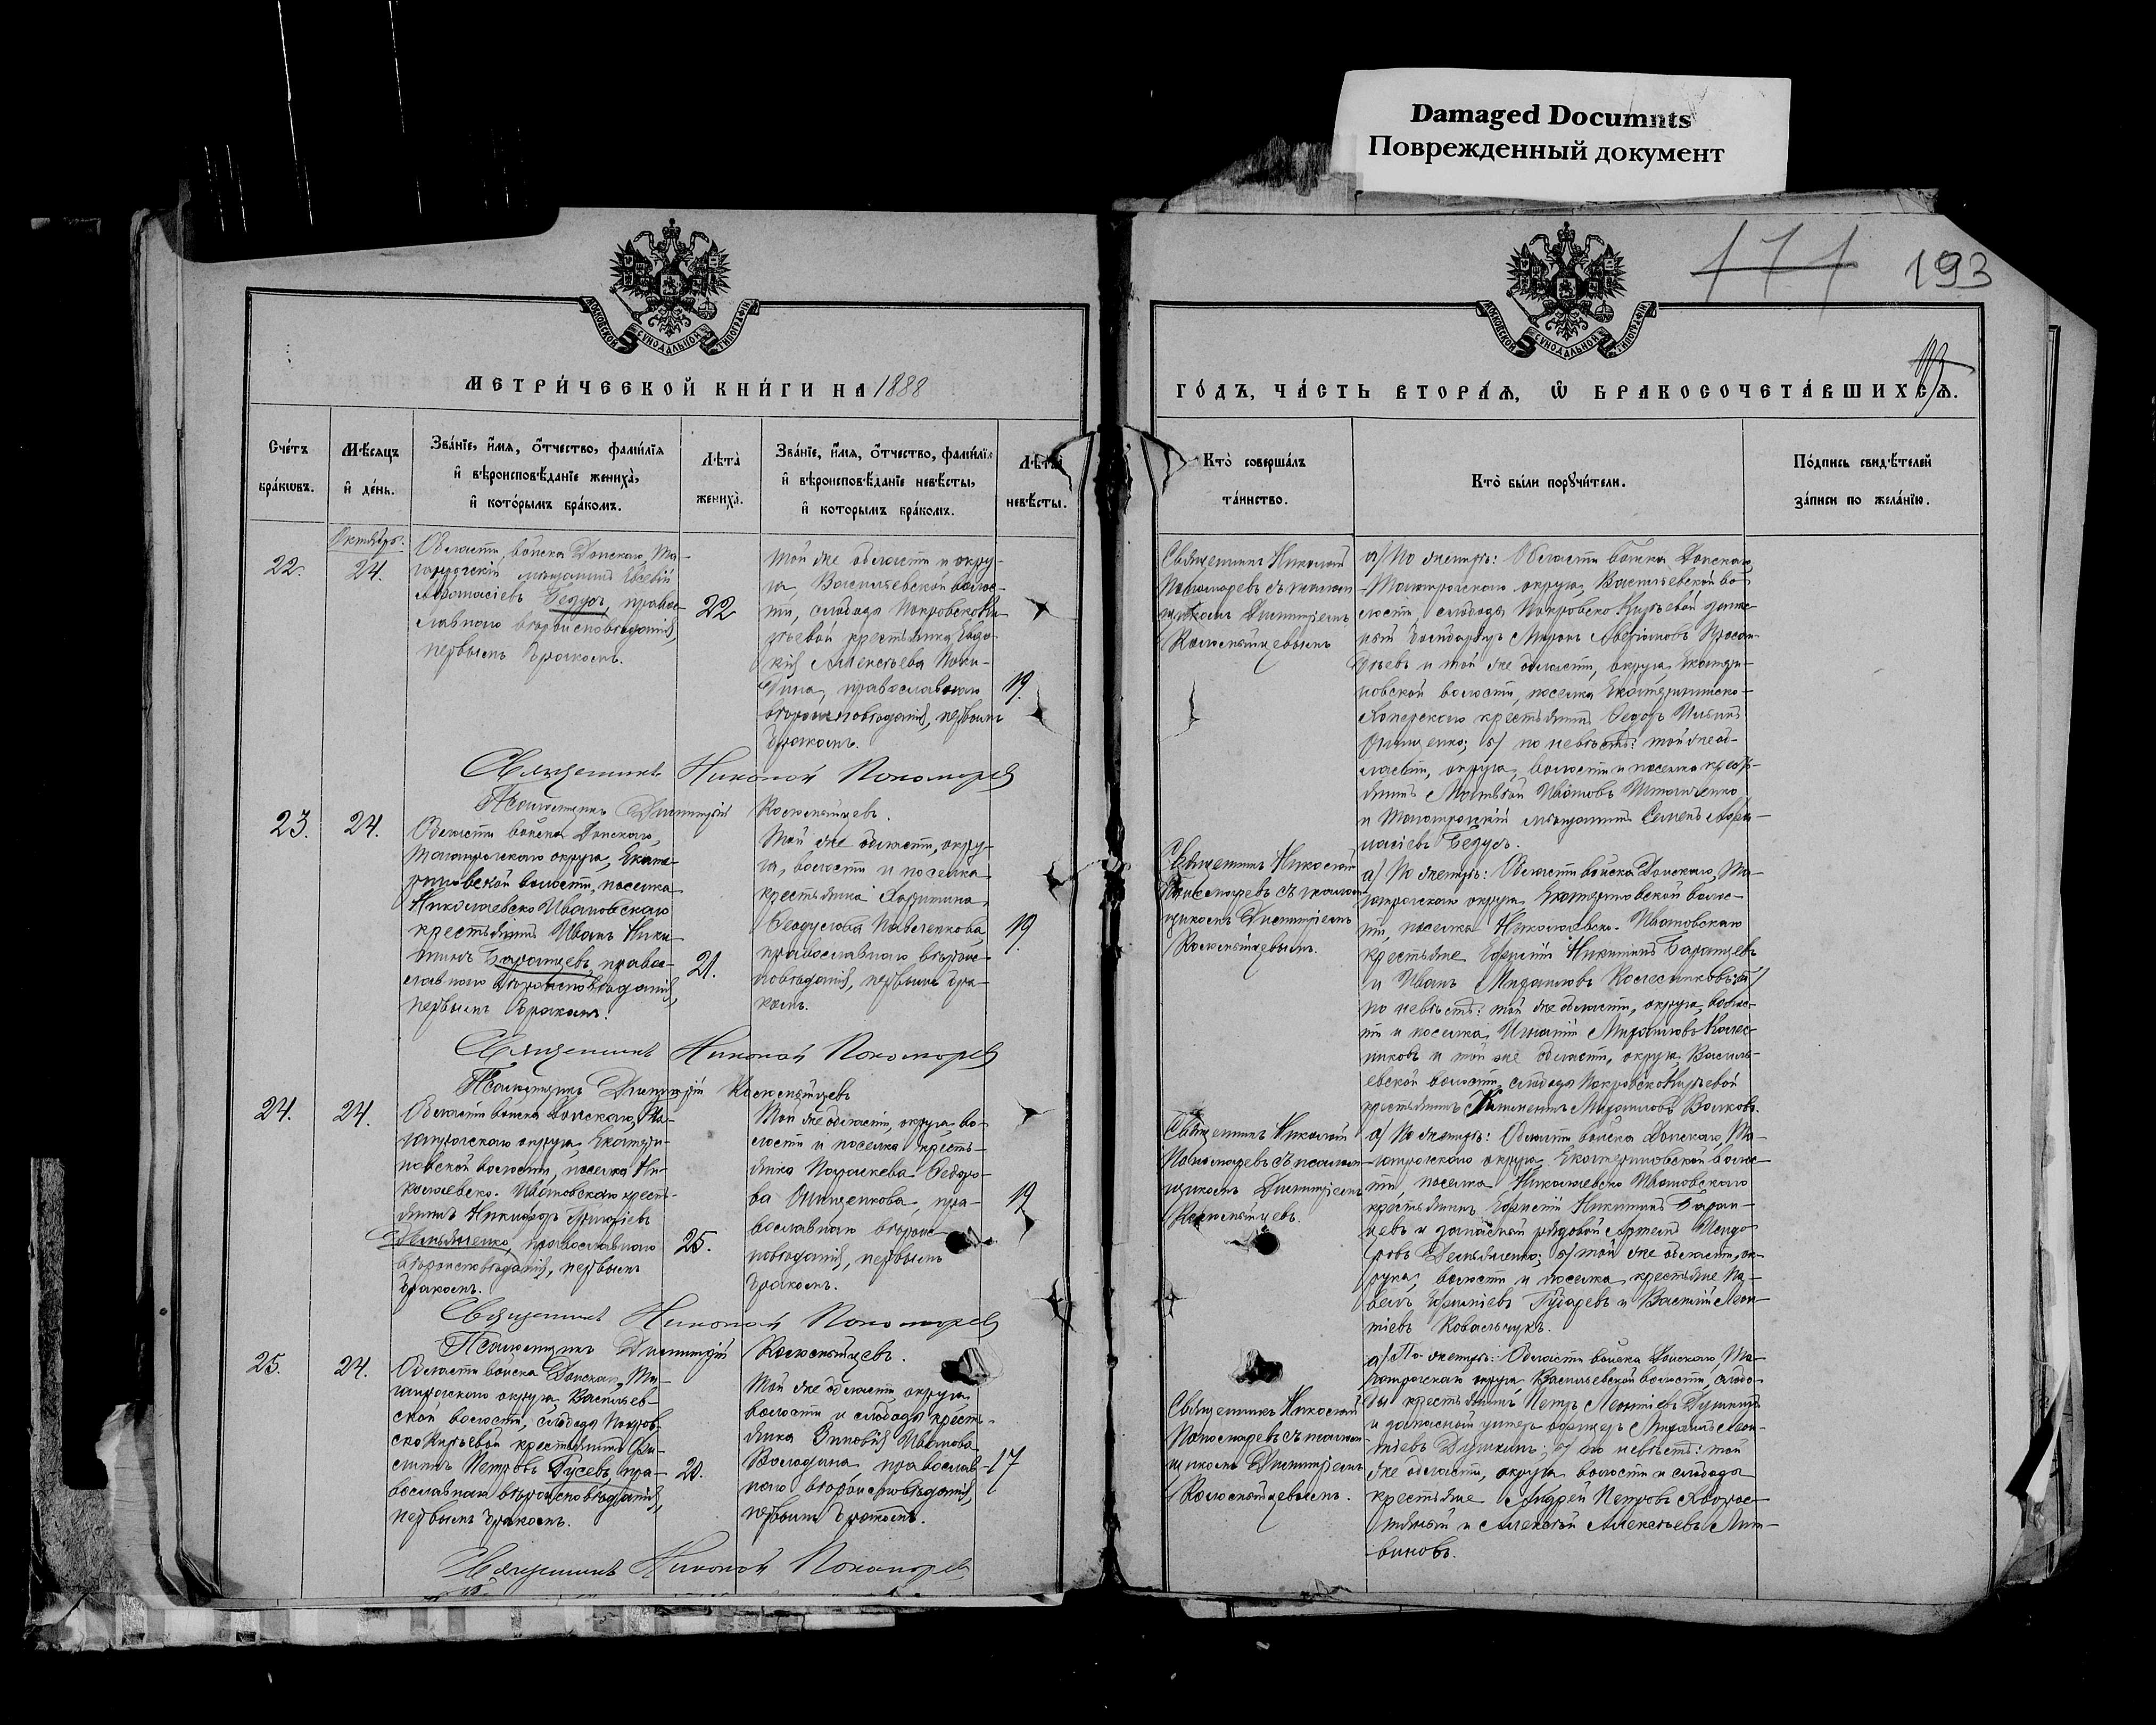 Damaged Documnts
Поврежденный документ
171
193
МОСКОВСКОЙ СѴНОДАЛЬНОЙ ТИПОГРАФІИ
МОСКОВСКОЙ СѴНОДАЛЬНОЙ ТИПОГРАФІИ
МЕТРИ́ЧЕСКОЙ КНИ́ГИ НА 1888
ГО́ДЪ, ЧА́СТЬ ВТОРА́Ѧ, Ѡ БРАКОСОЧЕТА́ВШИХСѦ.
Сче́тъ бра́кѡвъ.
Мѣ́сяцъ и де́нь.
Зва́нїе, и́мѧ, о́тчество, фами́лїѧ и вѣроисповѣ́данїе жениха̀, и кото́рымъ бра́комъ.
Лѣта̀ жениха̀.
Зва́нїе, и́мѧ, о́тчество, фами́лїѧ и вѣроисповѣ́данїе невѣ́сты, и кото́рымъ бра́комъ.
Лѣта̀ невѣ́сты.
Кто̀ соверша́лъ та́инство.
Кто̀ бы́ли порꙋчи́тели.
По́дпись свидѣ́телей за́писи по жела́нїю.
22.
Октябрь.
24.
Области войска Донскаго, Та-
ганрогскій мѣщанинъ Евсевій
Афанасіевъ Бедусъ, право-
славнаго вѣроисповѣданія,
первымъ бракомъ.
22
Той же области и окру-
га, Васильевской волос-
ти, слободы Покровско Ки-
рѣевой крестьянка Евдо-
кія Алексѣева
православнаго
вѣроисповѣданія, первымъ
бракомъ.
19.
Священникъ Николай
Пономаревъ съ псалом-
щикомъ Димитріемъ
а) По женихѣ: Области войска Донскаго,
Таганрогскаго округа, Васильевской во-
лости слободы Покровско Кирѣевой
Миронъ
и той же области, округа, Екатери-
новской волости, поселка
крестьянинъ Ѳедоръ
б) по невѣстѣ: той же об-
ласти, округа, волости и поселка кресть-
янинъ Матвѣй Ивановъ
и Таганрогскій мѣщанинъ Семенъ Афа-
насіевъ Бедусъ.
Священникъ Николай Пономаревъ
Псаломщикъ Димитрій
23.
24.
Области войска Донскаго,
Таганрогскаго округа, Екате-
риновской волости, поселка
Николаевско Ивановскаго
крестьянинъ Иванъ Ники-
тинъ Баранцевъ, право-
славнаго вѣроисповѣданія,
первымъ бракомъ.
21.
Той же области, окру-
га, волости и поселка
крестьянка Харитина
Павленкова
православнаго вѣроис-
повѣданія, первымъ бра-
комъ.
19.
Священникъ Николай
Пономаревъ съ псалом-
щикомъ Димитріемъ
а) По женихѣ: Области войска Донскаго, Та-
ганрогскаго округа Екатериновской волос-
ти, поселка Николаевско-Ивановскаго
крестьяне Ефимій Никитинъ Баранцевъ
и Иванъ Михайловъ Колесниковъ; б)
по невѣстѣ: той же области, округа, волос-
ти и поселка, Игнатій Михайловъ Колес-
никовъ и той же области, округа Василь-
евской волости, слободы Покровско Кирѣевой
крестьянинъ Михайловъ Волковъ.
Священникъ Николай Пономаревъ
Псаломщикъ Димитрій
24.
24.
Области войска Донскаго, Та-
ганрогскаго округа, Екатери-
новской волости, поселка Ни-
колаевско-Ивановскаго кресть-
янинъ Никифоръ Григоріевъ
Демьяненко, православнаго
вѣроисповѣданія, первымъ
бракомъ.
25.
Той же области, округа, во-
лости и поселка кресть-
янка Параскева Ѳедоро-
ва Онищенкова, пра-
вославнаго вѣроис-
повѣданія, первымъ
бракомъ.
19
Священникъ Николай
Пономаревъ съ псалом-
щикомъ Димитріемъ
а) По женихѣ: Области войска Донскаго, Та-
ганрогскаго округа, Екатериновской волос-
ти поселка Николаевско Ивановскаго
крестьянинъ Ефимій Никитинъ Баран-
цевъ и запасный рядовой Артемъ
Демьяненко; б) той же области, ок-
руга, волости и поселка крестьяне Па-
велъ Гударевъ и Василій Леон-
тіевъ Ковальчукъ.
Священникъ Николай Пономаревъ
Псаломщикъ Димитрій
25.
24.
Области войска Донскаго, Та-
ганрогскаго округа, Васильев-
ской волости, слободы Покров-
ско Кирѣевой крестьянинъ
Петровъ Гусевъ, пра-
вославнаго вѣроисповѣданія,
первымъ бракомъ.
20.
Той же области округа,
волости и слободы кресть-
янка Зиновія Иванова
Володина православ-
наго вѣроисповѣданія,
первымъ бракомъ.
17
Священникъ Николай
Пономаревъ съ псалом-
щикомъ Димитріемъ
а) По женихѣ: Области войска Донскаго, Та-
ганрогскаго округа Васильевской волости, слобо-
ды крестьянинъ Петръ Леонтіевъ Душкинъ
и запасный унтеръ-офицеръ Михаилъ Леон-
тіевъ Душкинъ; б) по невѣстѣ: той
же области, округа волости и слободы
крестьяне Андрей Петровъ Хворос-
тяный и Алексѣй Алексѣевъ Лит-
виновъ.
Священникъ Николай Пономаревъ